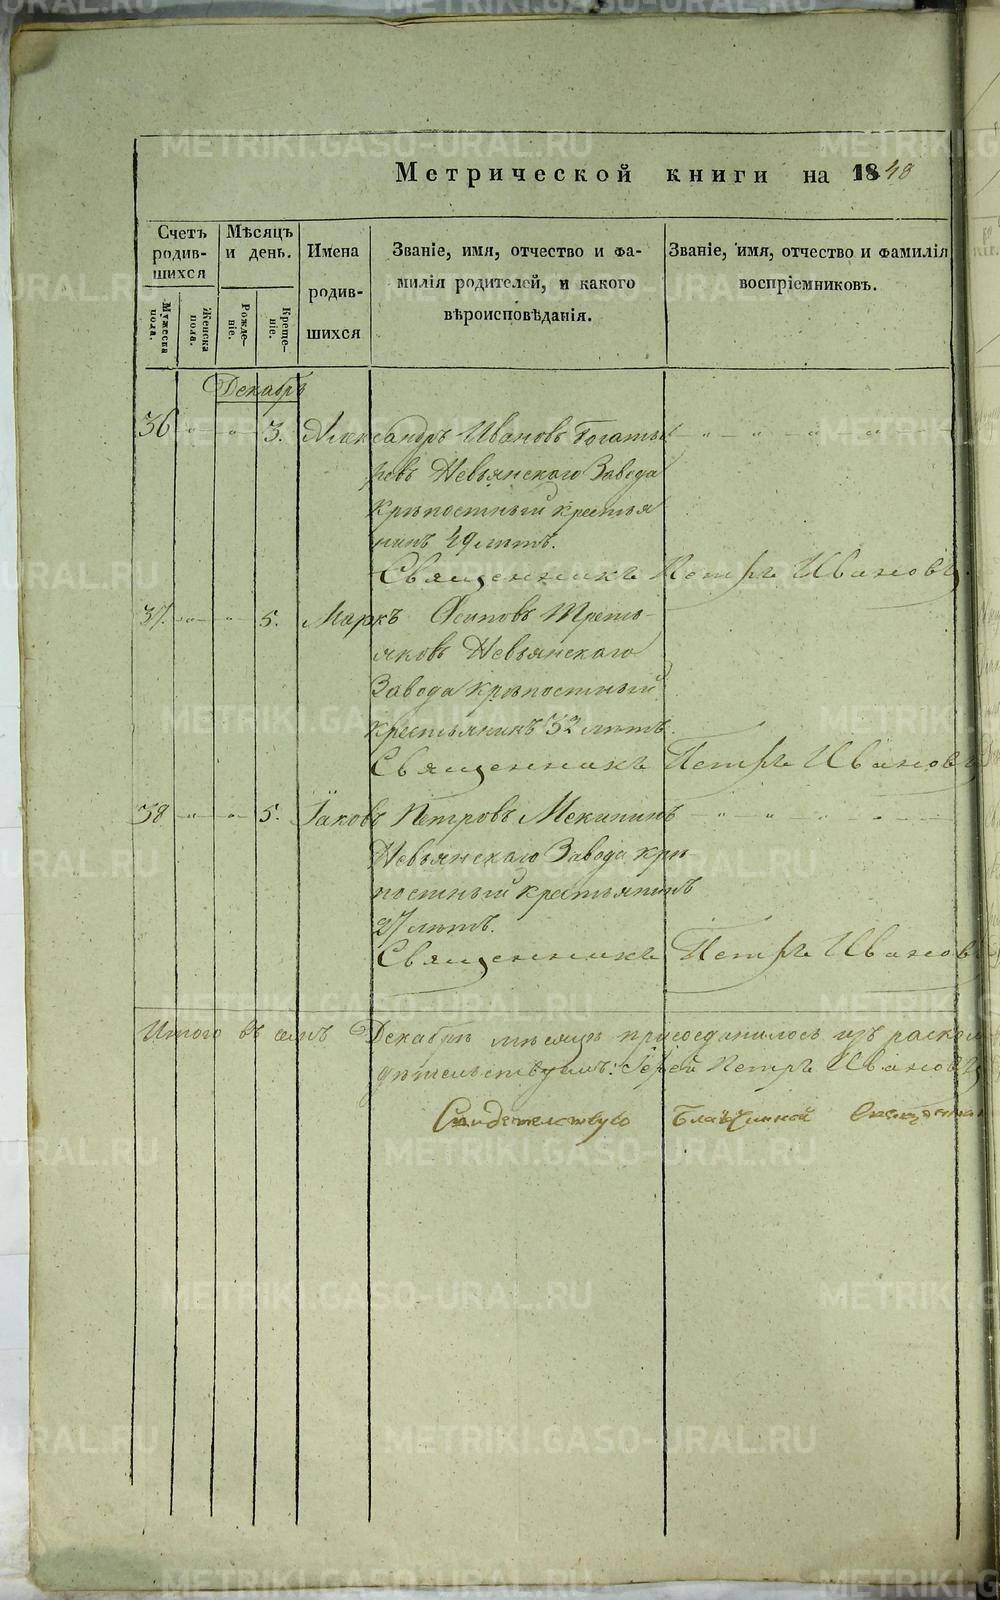 Метрической книги на 1848
Счетъ родив-шихся
Мѣсяцъ и день.
Имена родив-шихся
Званіе, имя, отчество и фа-
милія родителей, и какого
вѣроисповѣданія.
Званіе, имя, отчество и фамилія
воспріемниковъ.
Мужеска пола.
Женска пола.
Рожде-ніе.
Креще-ніе.
Декабрь
36 " " 3. Александръ Ивановъ Богаты
ревъ Невьянскаго Завода
крѣпостный крестья
нинъ 49 лѣтъ.
Священникъ Петръ Ивановъ.
37. " " 5. Маркъ Осиповъ Треть-
яковъ Невьянскаго
Завода крѣпостный
крестьянинъ 32 лѣтъ.
Священникъ Петръ Ивановъ
38 " " 5. Іаковъ Петровъ Мекининъ
Невьянскаго Завода крѣ
постный крестьянинъ
27 лѣтъ.
Священникъ Петръ Ивановъ
Итого въ семъ Декабрѣ мѣсяцѣ присоединилось изъ раскол
Іерей Петръ Ивановъ
Свидетельствую Благочинной
METRIKI.GASO-URAL.RU